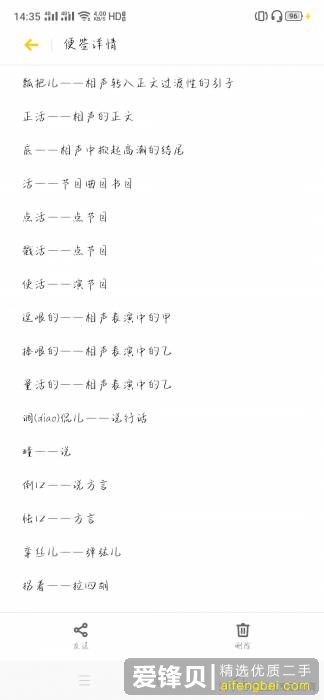 14:35 4G 4G 4.00 KB/S HD 96
便签详情
瓢把儿——相声转入正文过渡性的引子
正活——相声的正文
底——相声中掀起高潮的结尾
活——节目曲目书目
点活——点节目
戳活——点节目
使活——演节目
逗哏的——相声表演中的甲
捧哏的——相声表演中的乙
量活的——相声表演中的乙
调(diao)侃儿——说行话
瞳——说
倒口——说方言
怯口——方言
拿丝儿——弹弦儿
拐着——拉四胡
发送 删除
爱锋贝 精选优质二手
aifengbei.com